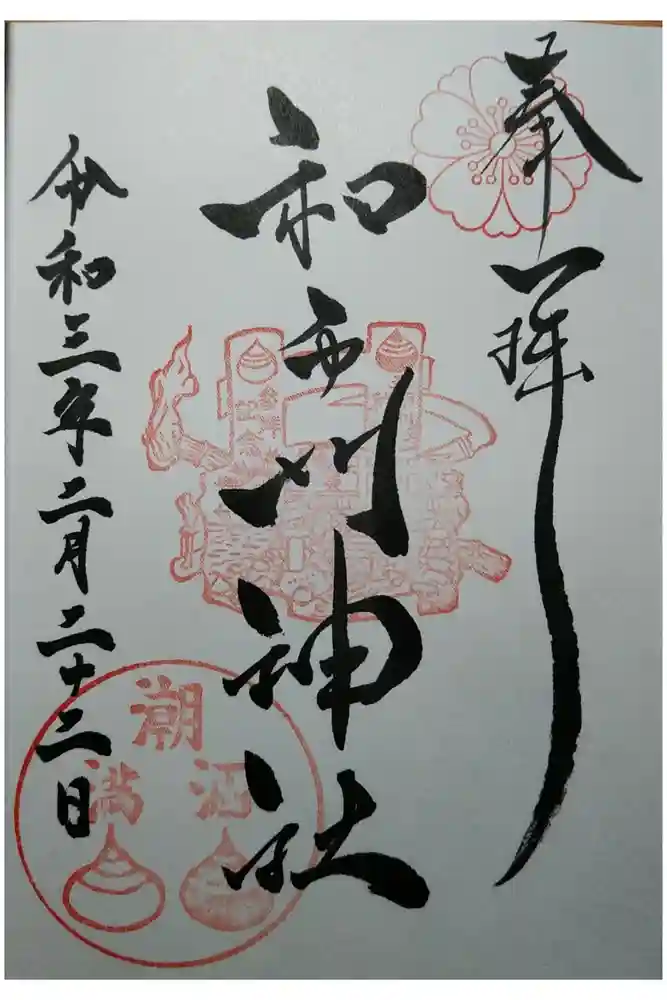 奉拜
和布刈神社
令和三年二月二十二日
潮
涸
満